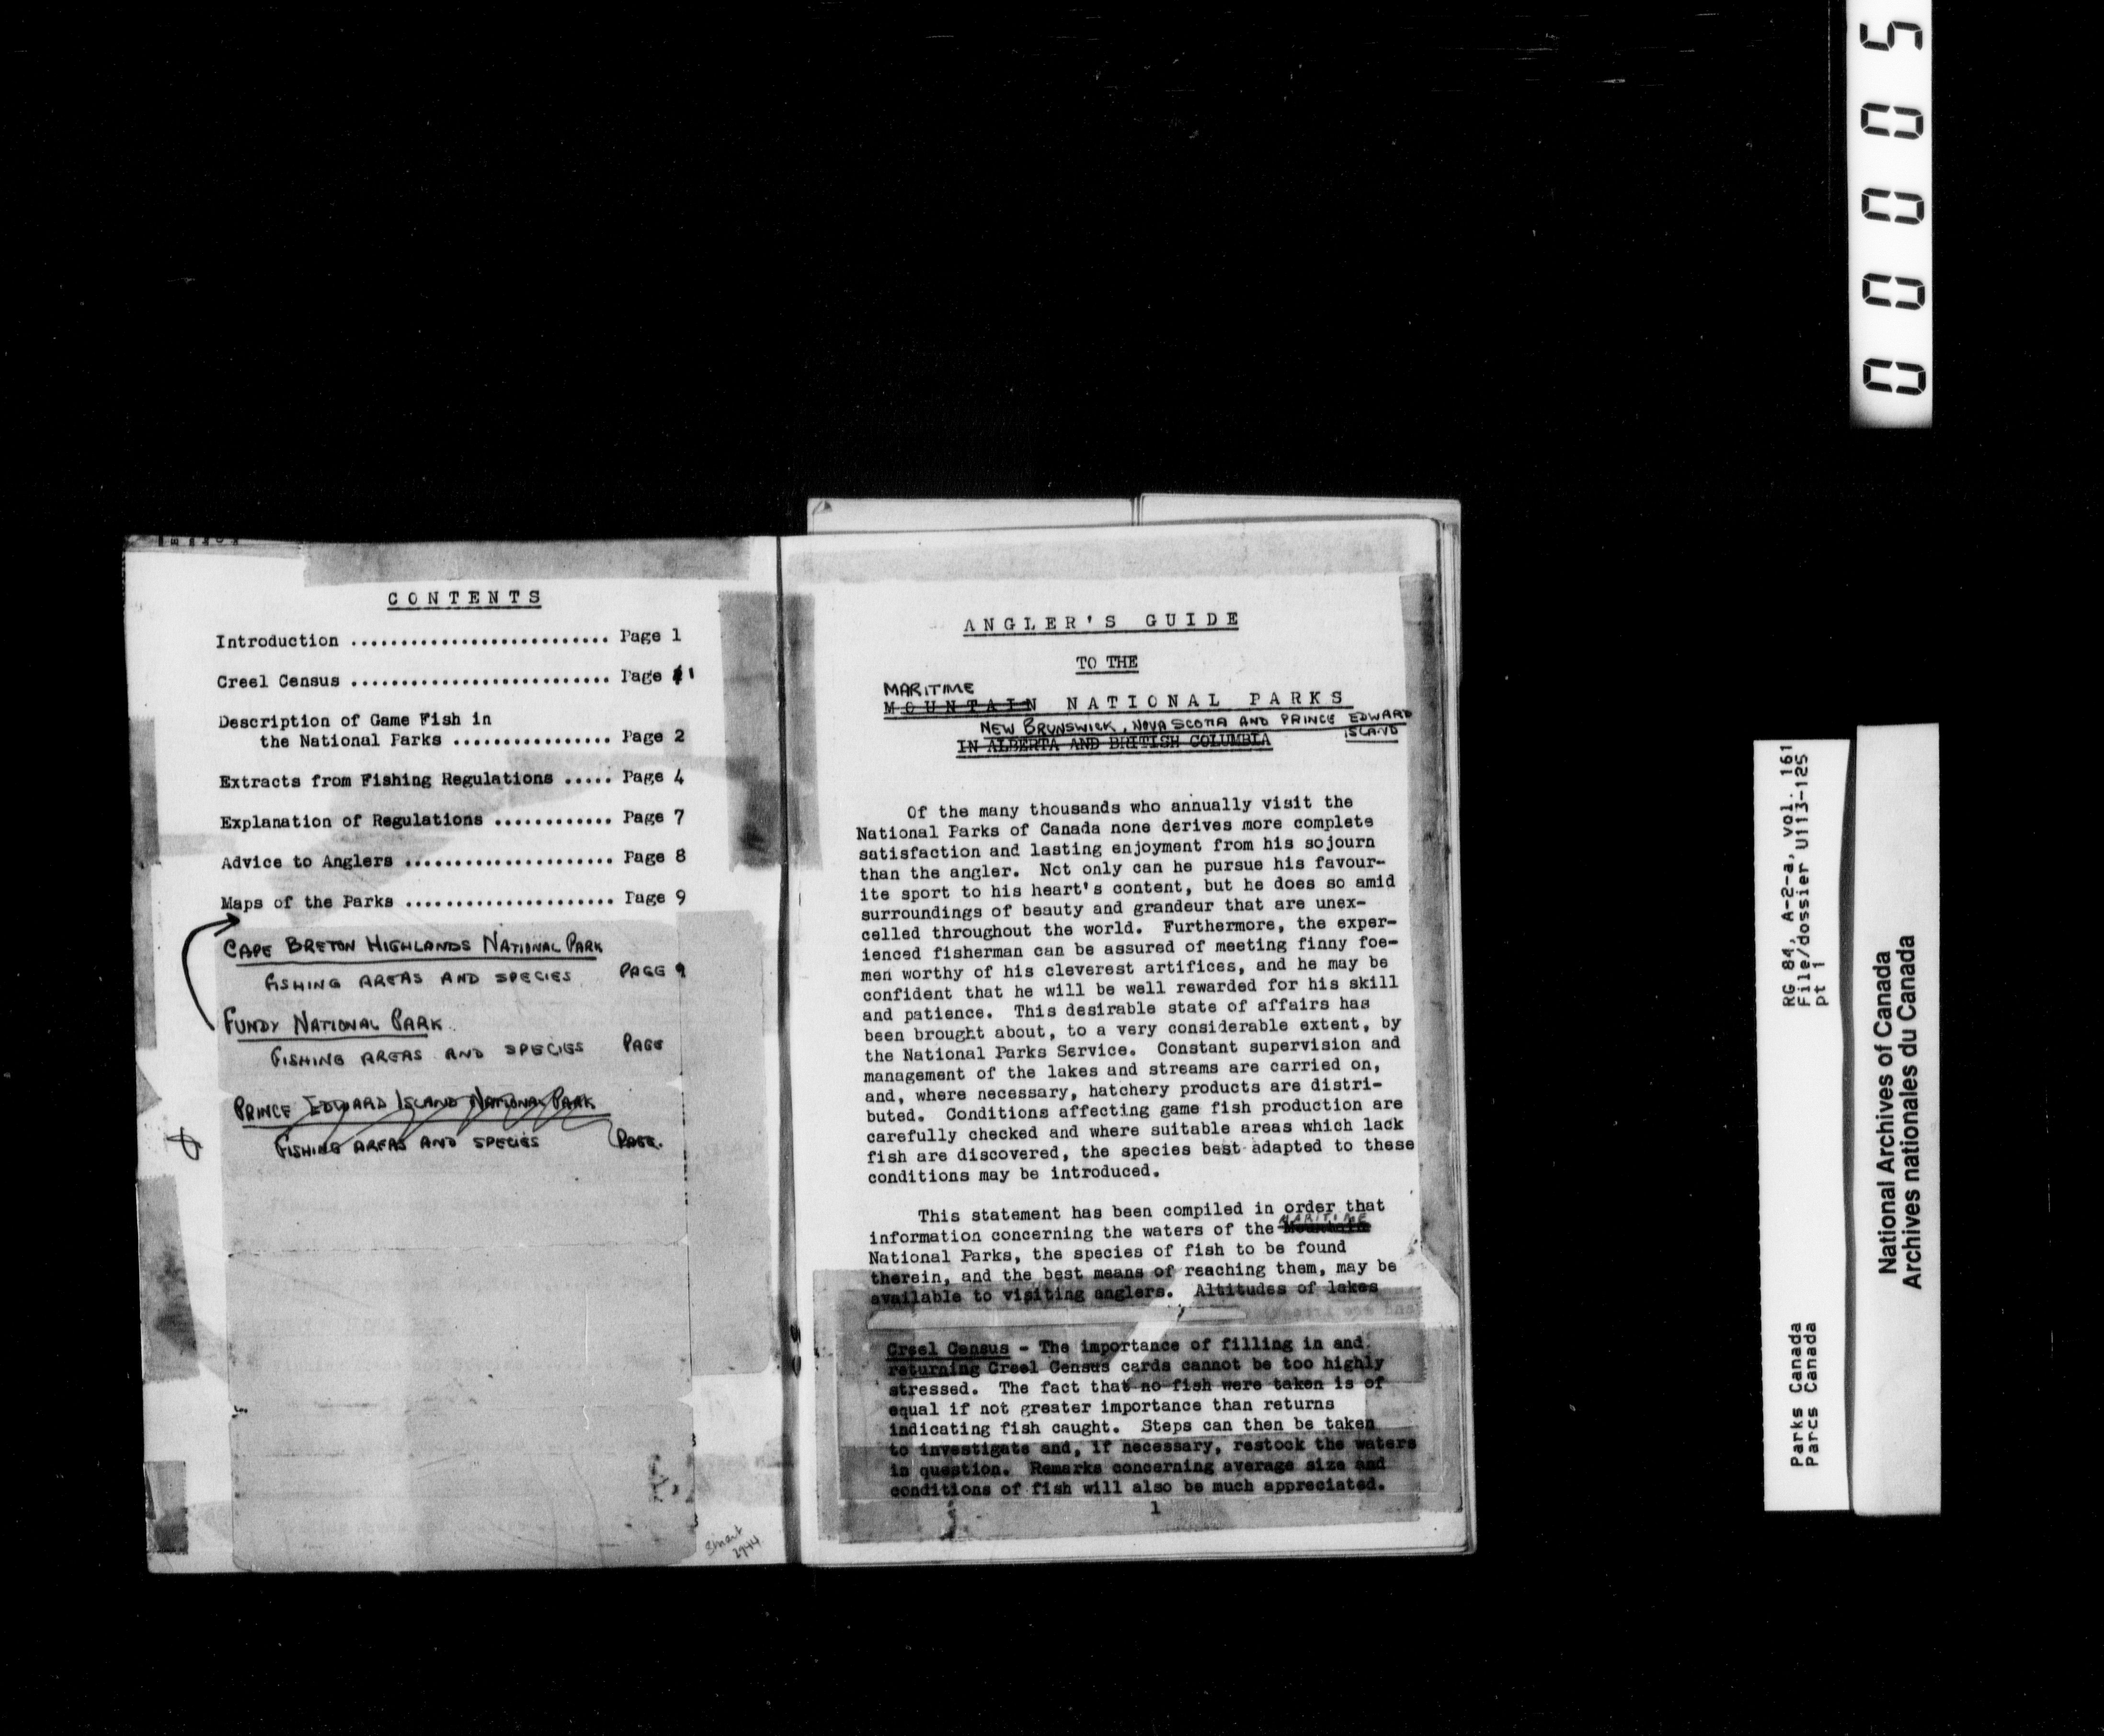 CONTENTS
Introduction .......................... Page 1
Creel Census .......................... Page 1
Description of Game Fish in
the National Parks ................ Page 2
Extracts from Fishing Regulations ..... Page 4
Explanation of Regulations ............ Page 7
Advice to Anglers ..................... Page 8
Maps of the Parks ..................... Page 9
CAPE BRETON HIGHLANDS NATIONAL PARK
FISHING AREAS AND SPECIES PAGE 9
FUNDY NATIONAL PARK
FISHING AREAS AND SPECIES PAGE
PRINCE EDWARD ISLAND NATIONAL PARK
FISHING AREAS AND SPECIES PAGE.
ANGLER'S GUIDE
TO THE
MARITIME
MOUNTAIN NATIONAL PARKS
NEW BRUNSWICK, NOVA SCOTIA AND PRINCE EDWARD
ISLAND
IN ALBERTA AND BRITISH COLUMBIA
Of the many thousands who annually visit the
National Parks of Canada none derives more complete
satisfaction and lasting enjoyment from his sojourn
than the angler. Not only can he pursue his favour-
ite sport to his heart's content, but he does so amid
surroundings of beauty and grandeur that are unex-
celled throughout the world. Furthermore, the exper-
ienced fisherman can be assured of meeting finny foe-
men worthy of his cleverest artifices, and he may be
confident that he will be well rewarded for his skill
and patience. This desirable state of affairs has
been brought about, to a very considerable extent, by
the National Parks Service. Constant supervision and
management of the lakes and streams are carried on,
and, where necessary, hatchery products are distri-
buted. Conditions affecting game fish production are
carefully checked and where suitable areas which lack
fish are discovered, the species best adapted to these
conditions may be introduced.
This statement has been compiled in order that
MARITIME
information concerning the waters of the Mountain
National Parks, the species of fish to be found
therein, and the best means of reaching them, may be
available to visiting anglers. Altitudes of lakes
Creel Census - The importance of filling in and
returning Creel Census cards cannot be too highly
stressed. The fact that no fish were taken is of
equal if not greater importance than returns
indicating fish caught. Steps can then be taken
to investigate and, if necessary, restock the waters
in question. Remarks concerning average size and
conditions of fish will also be much appreciated.
1
00005
RG 84, A-2-a, vol. 161
File/dossier U113-125
pt 1
Parks Canada
Parcs Canada
National Archives of Canada
Archives nationales du Canada